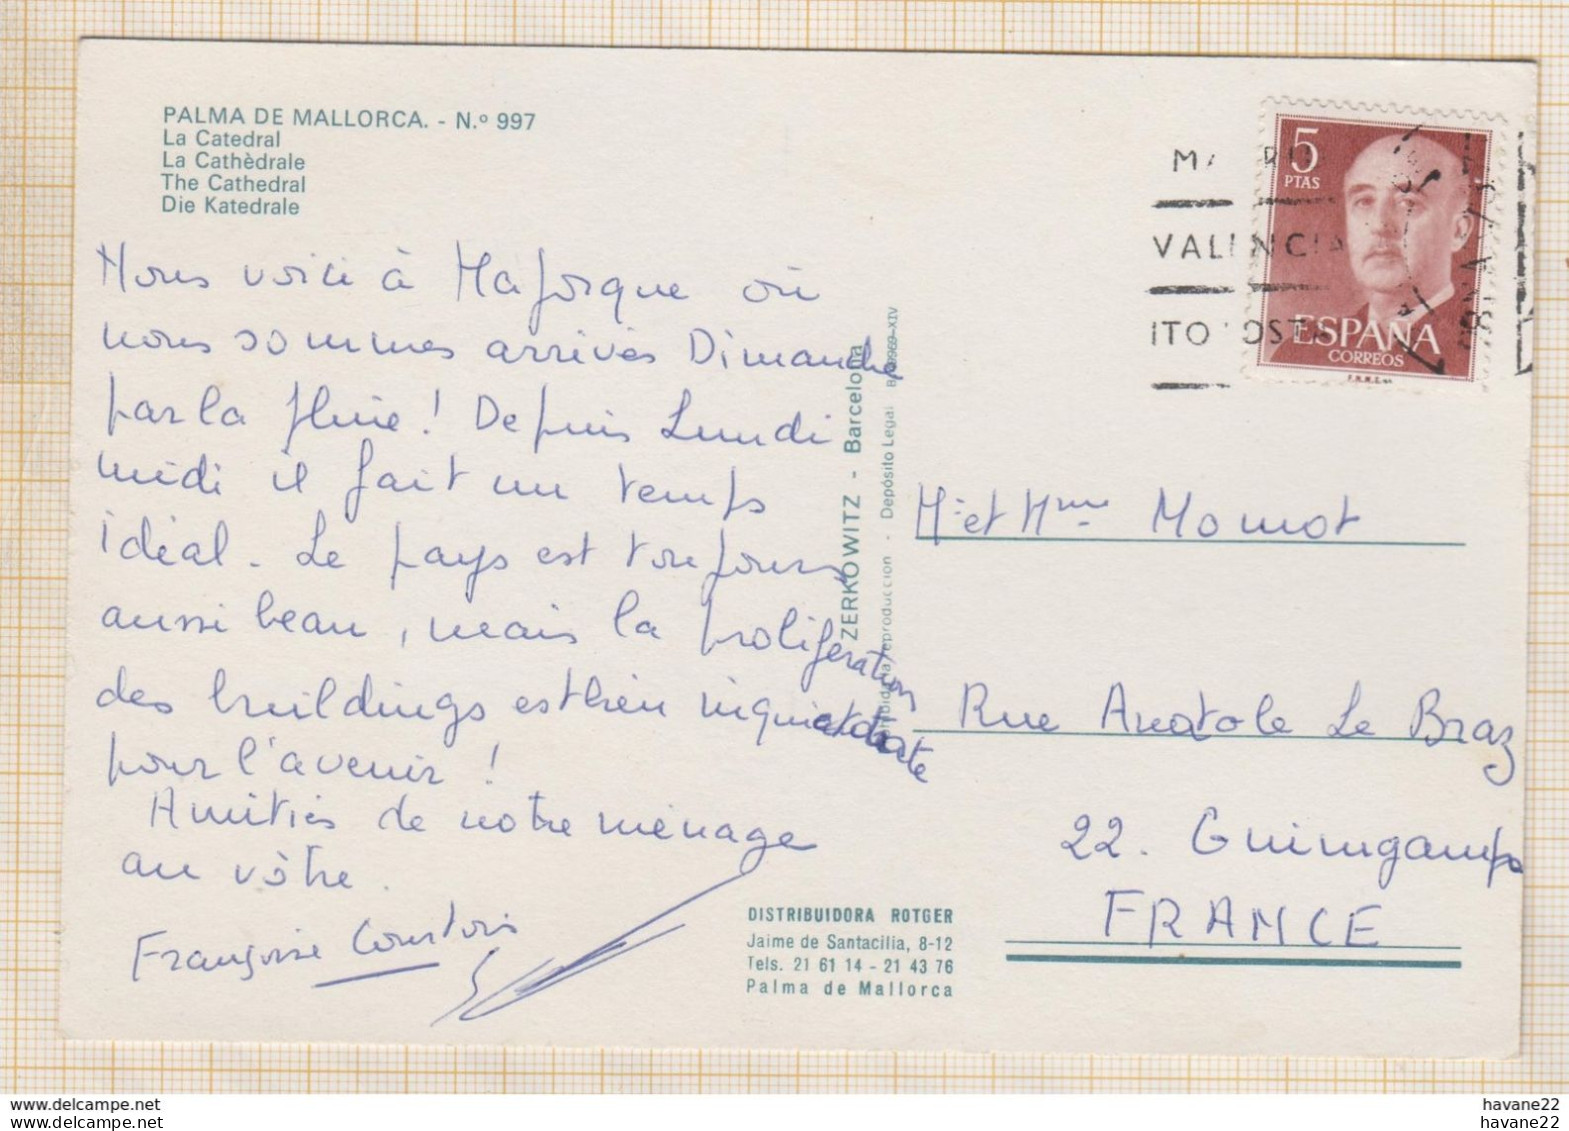 PALMA DE MALLORCA. - N.º 997
La Catedral
La Cathèdrale
The Cathedral
Die Katedrale
Nous voici à Majorque où
nous sommes arrivés Dimanche
par la pluie ! Depuis Lundi
midi il fait un temps
idéal. Le pays est toujours
aussi beau, mais la prolifération
des buildings est bien
pour l'avenir !
Amitiés de notre ménage
au vôtre.
Françoise Courtois
ZERKOWITZ - Barcelona
reproducción - Depósito Legal -XIV
5
PTAS
ESPAÑA
CORREOS
VALENCIA
Mr et Mme Momot
Rue Anatole Le Braz
22. Guimgamp
FRANCE
DISTRIBUIDORA ROTGER
Jaime de Santacilia, 8-12
Tels. 21 61 14 - 21 43 76
Palma de Mallorca
www.delcampe.net
www.delcampe.net
havane22
havane22